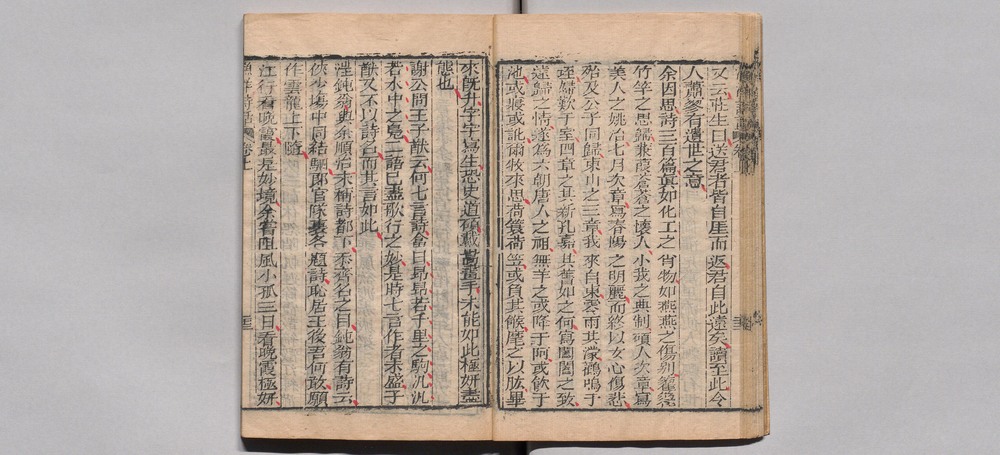 又云壯生曰送君者皆自厓而返君自此遠矣讀至此令
人蕭寥有遺世之意
余因思詩三百篇真如化工之肖物如燕燕之傷別籊籊
竹竿之思歸蒹葭蒼蒼之懷人小戎之典制碩人次章寫
美人之姚冶七月次章寫春陽之明麗而終以女心傷悲
殆及公子同歸東山之三章我來自東零雨其濛鸛鳴于
垤婦歎于室四章之其新孔嘉其舊如之何寫閨閫之致
遠歸之情遂為六朝唐人之祖無羊之或降于阿或飲于
池或寢或訛爾牧來思荷蓑荷笠或負其餱麾之以肱畢
來既升字字寫生恐史道碩戴嵩畫手未能如此極妍盡
態也
謝公問王子猷云何七言詩答曰昂昂若千里之駒汎汎
若水中之鳧二語已盡歌行之妙是時七言作者未盛子
猷又不以詩名而其言如此
汪鈍翁與余順治末稱詩都下忝齊名之目鈍翁有詩云
俠少場中同結騎郎官隊裏各題詩恥居王後吾何敢願
作雲龍上下隨
江行看晚霞最是妙境余嘗阻風小孤三日看晚霞極妍
漁洋詩話 卷上